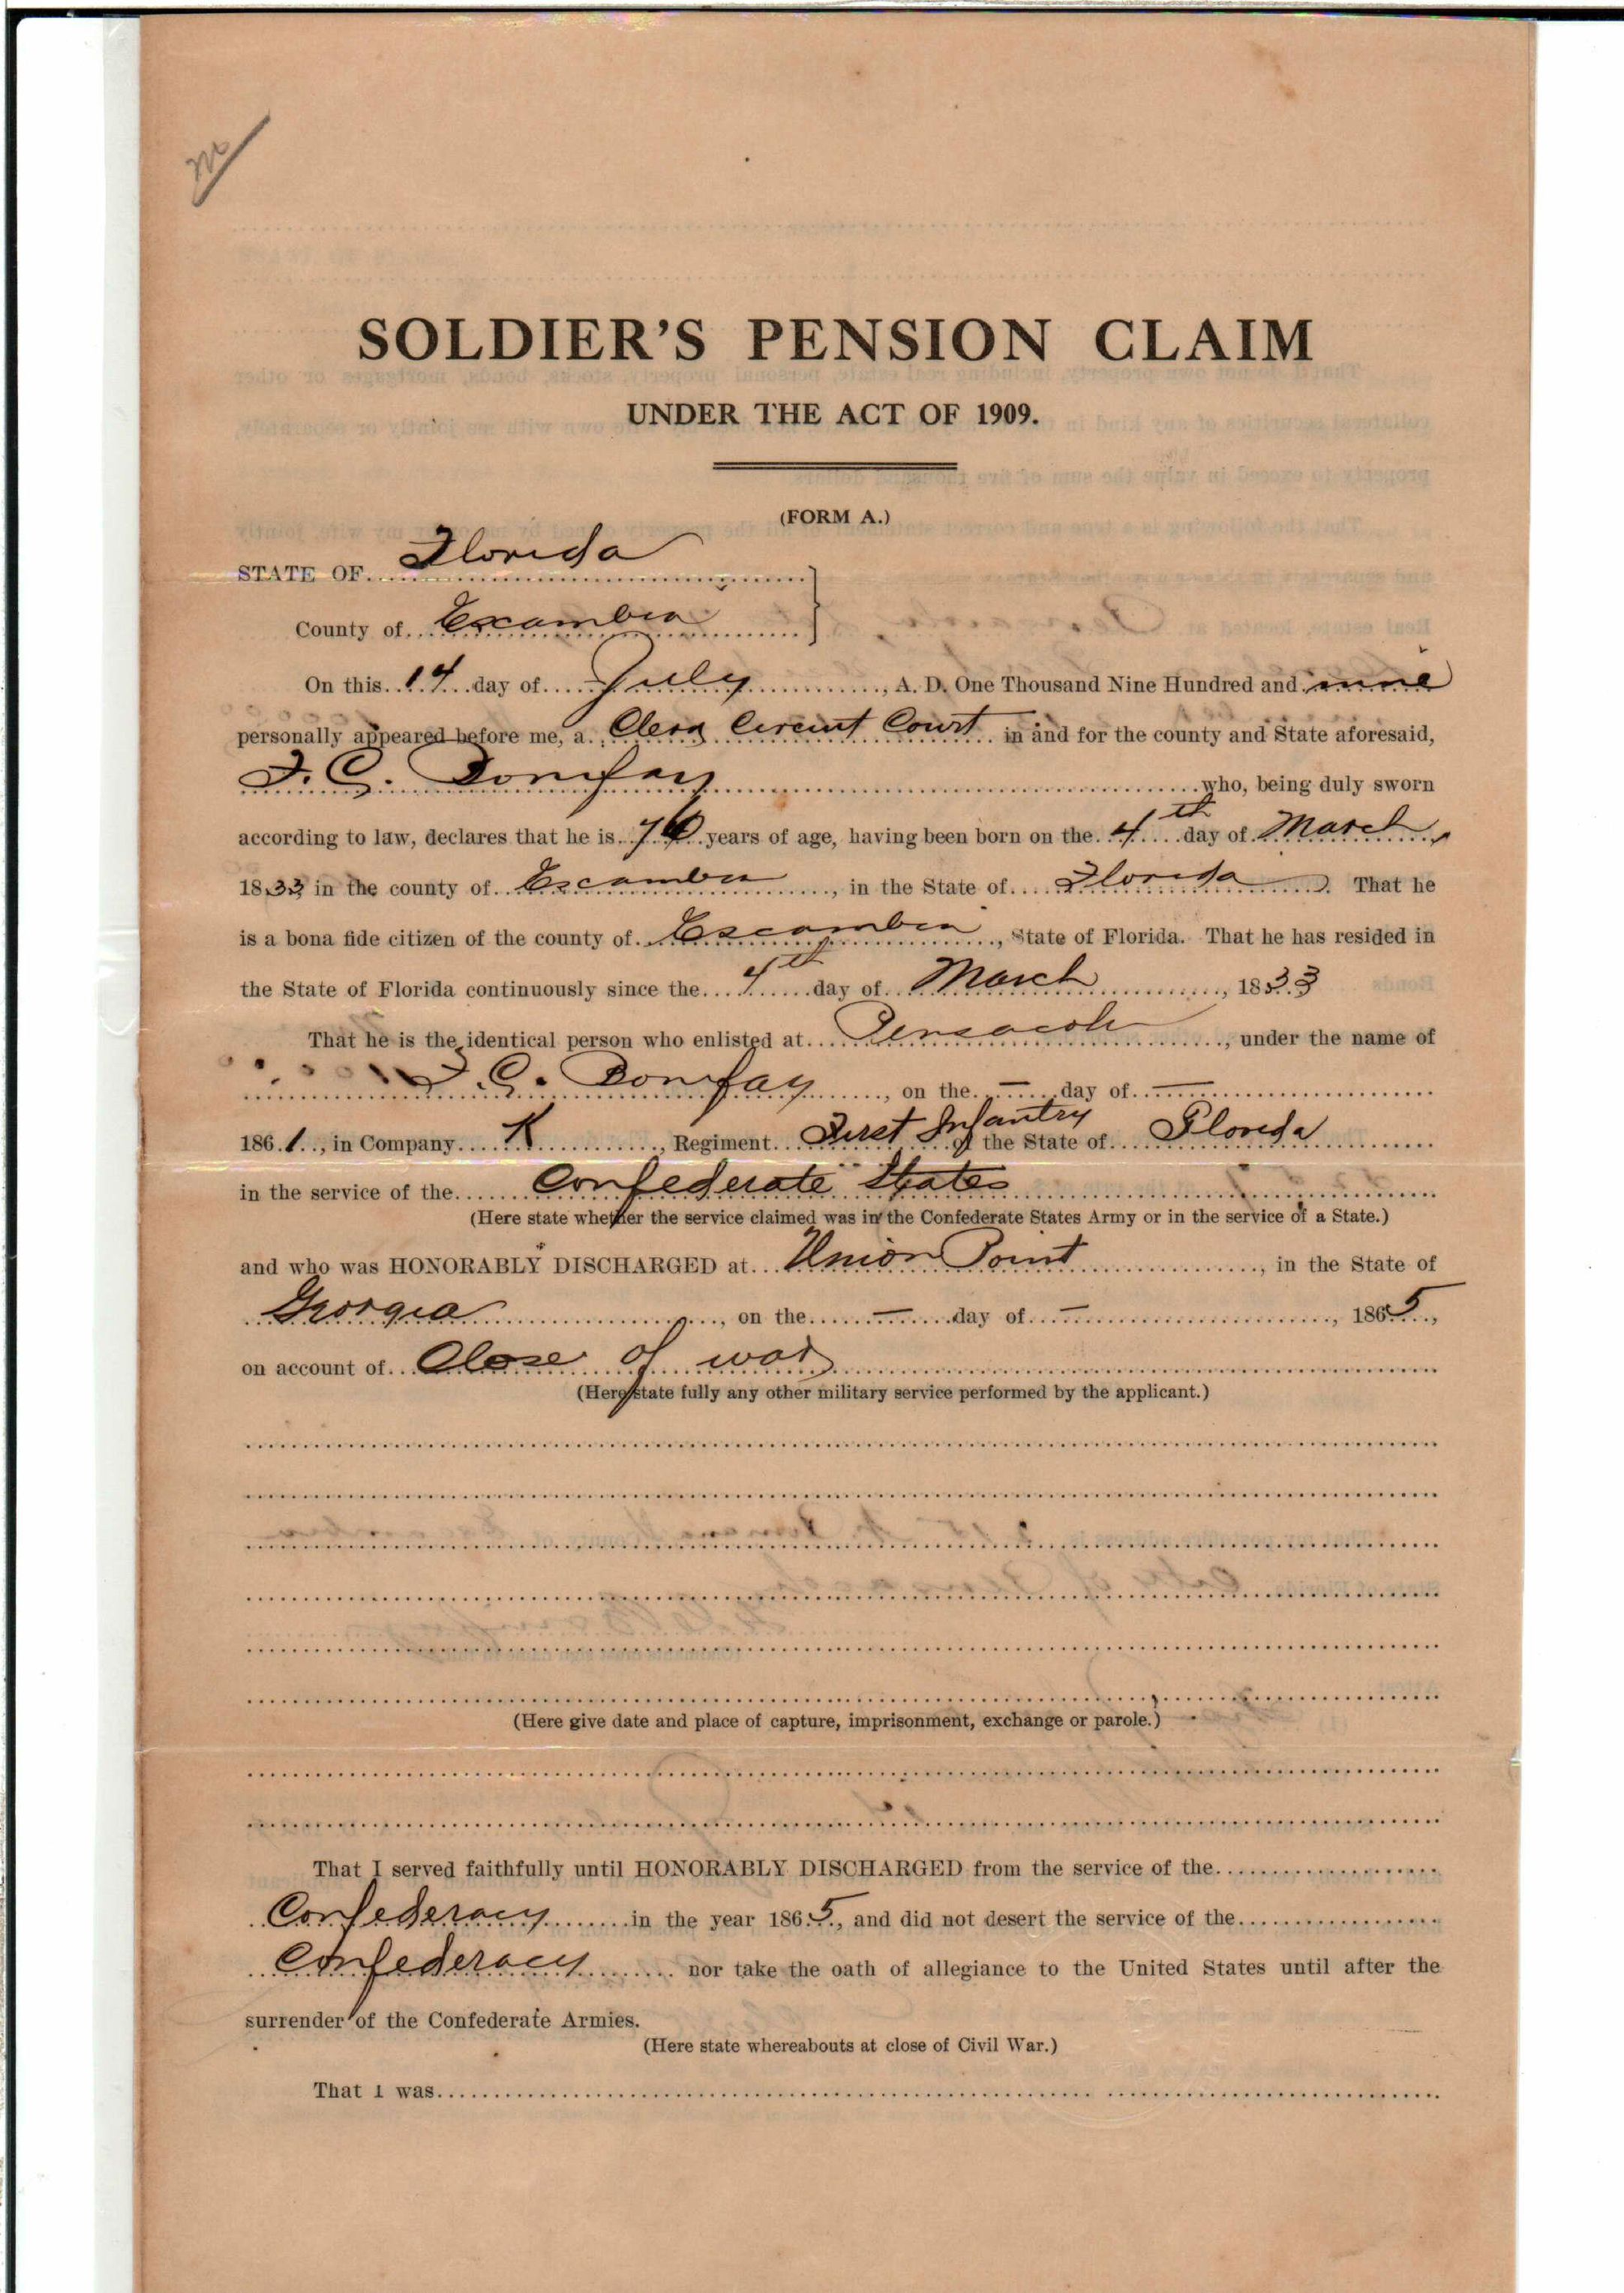 SOLDIER'S PENSION CLAIM
UNDER THE ACT OF 1909.
(FORM A.)
STATE OF Florida
County of Escambia
On this 14 day of July, A. D. One Thousand Nine Hundred and nine
personally appeared before me, a Clerk Circuit Court in and for the county and State aforesaid,
F. C. Bonifay who, being duly sworn
according to law, declares that he is 76 years of age, having been born on the 4th day of March,
1833 in the county of Escambia, in the State of Florida. That he
is a bona fide citizen of the county of Escambia, State of Florida. That he has resided in
the State of Florida continuously since the 4th day of March, 1833
That he is the identical person who enlisted at Pensacola, under the name of
F. C. Bonifay, on the — day of —
1861, in Company K, Regiment First Infantry of the State of Florida
in the service of the Confederate States
(Here state whether the service claimed was in the Confederate States Army or in the service of a State.)
and who was HONORABLY DISCHARGED at Union Point, in the State of
Georgia, on the — day of —, 1865,
on account of Close of war
(Here state fully any other military service performed by the applicant.)
(Here give date and place of capture, imprisonment, exchange or parole.)
That I served faithfully until HONORABLY DISCHARGED from the service of the
Confederacy in the year 1865, and did not desert the service of the
Confederacy nor take the oath of allegiance to the United States until after the
surrender of the Confederate Armies.
(Here state whereabouts at close of Civil War.)
That I was